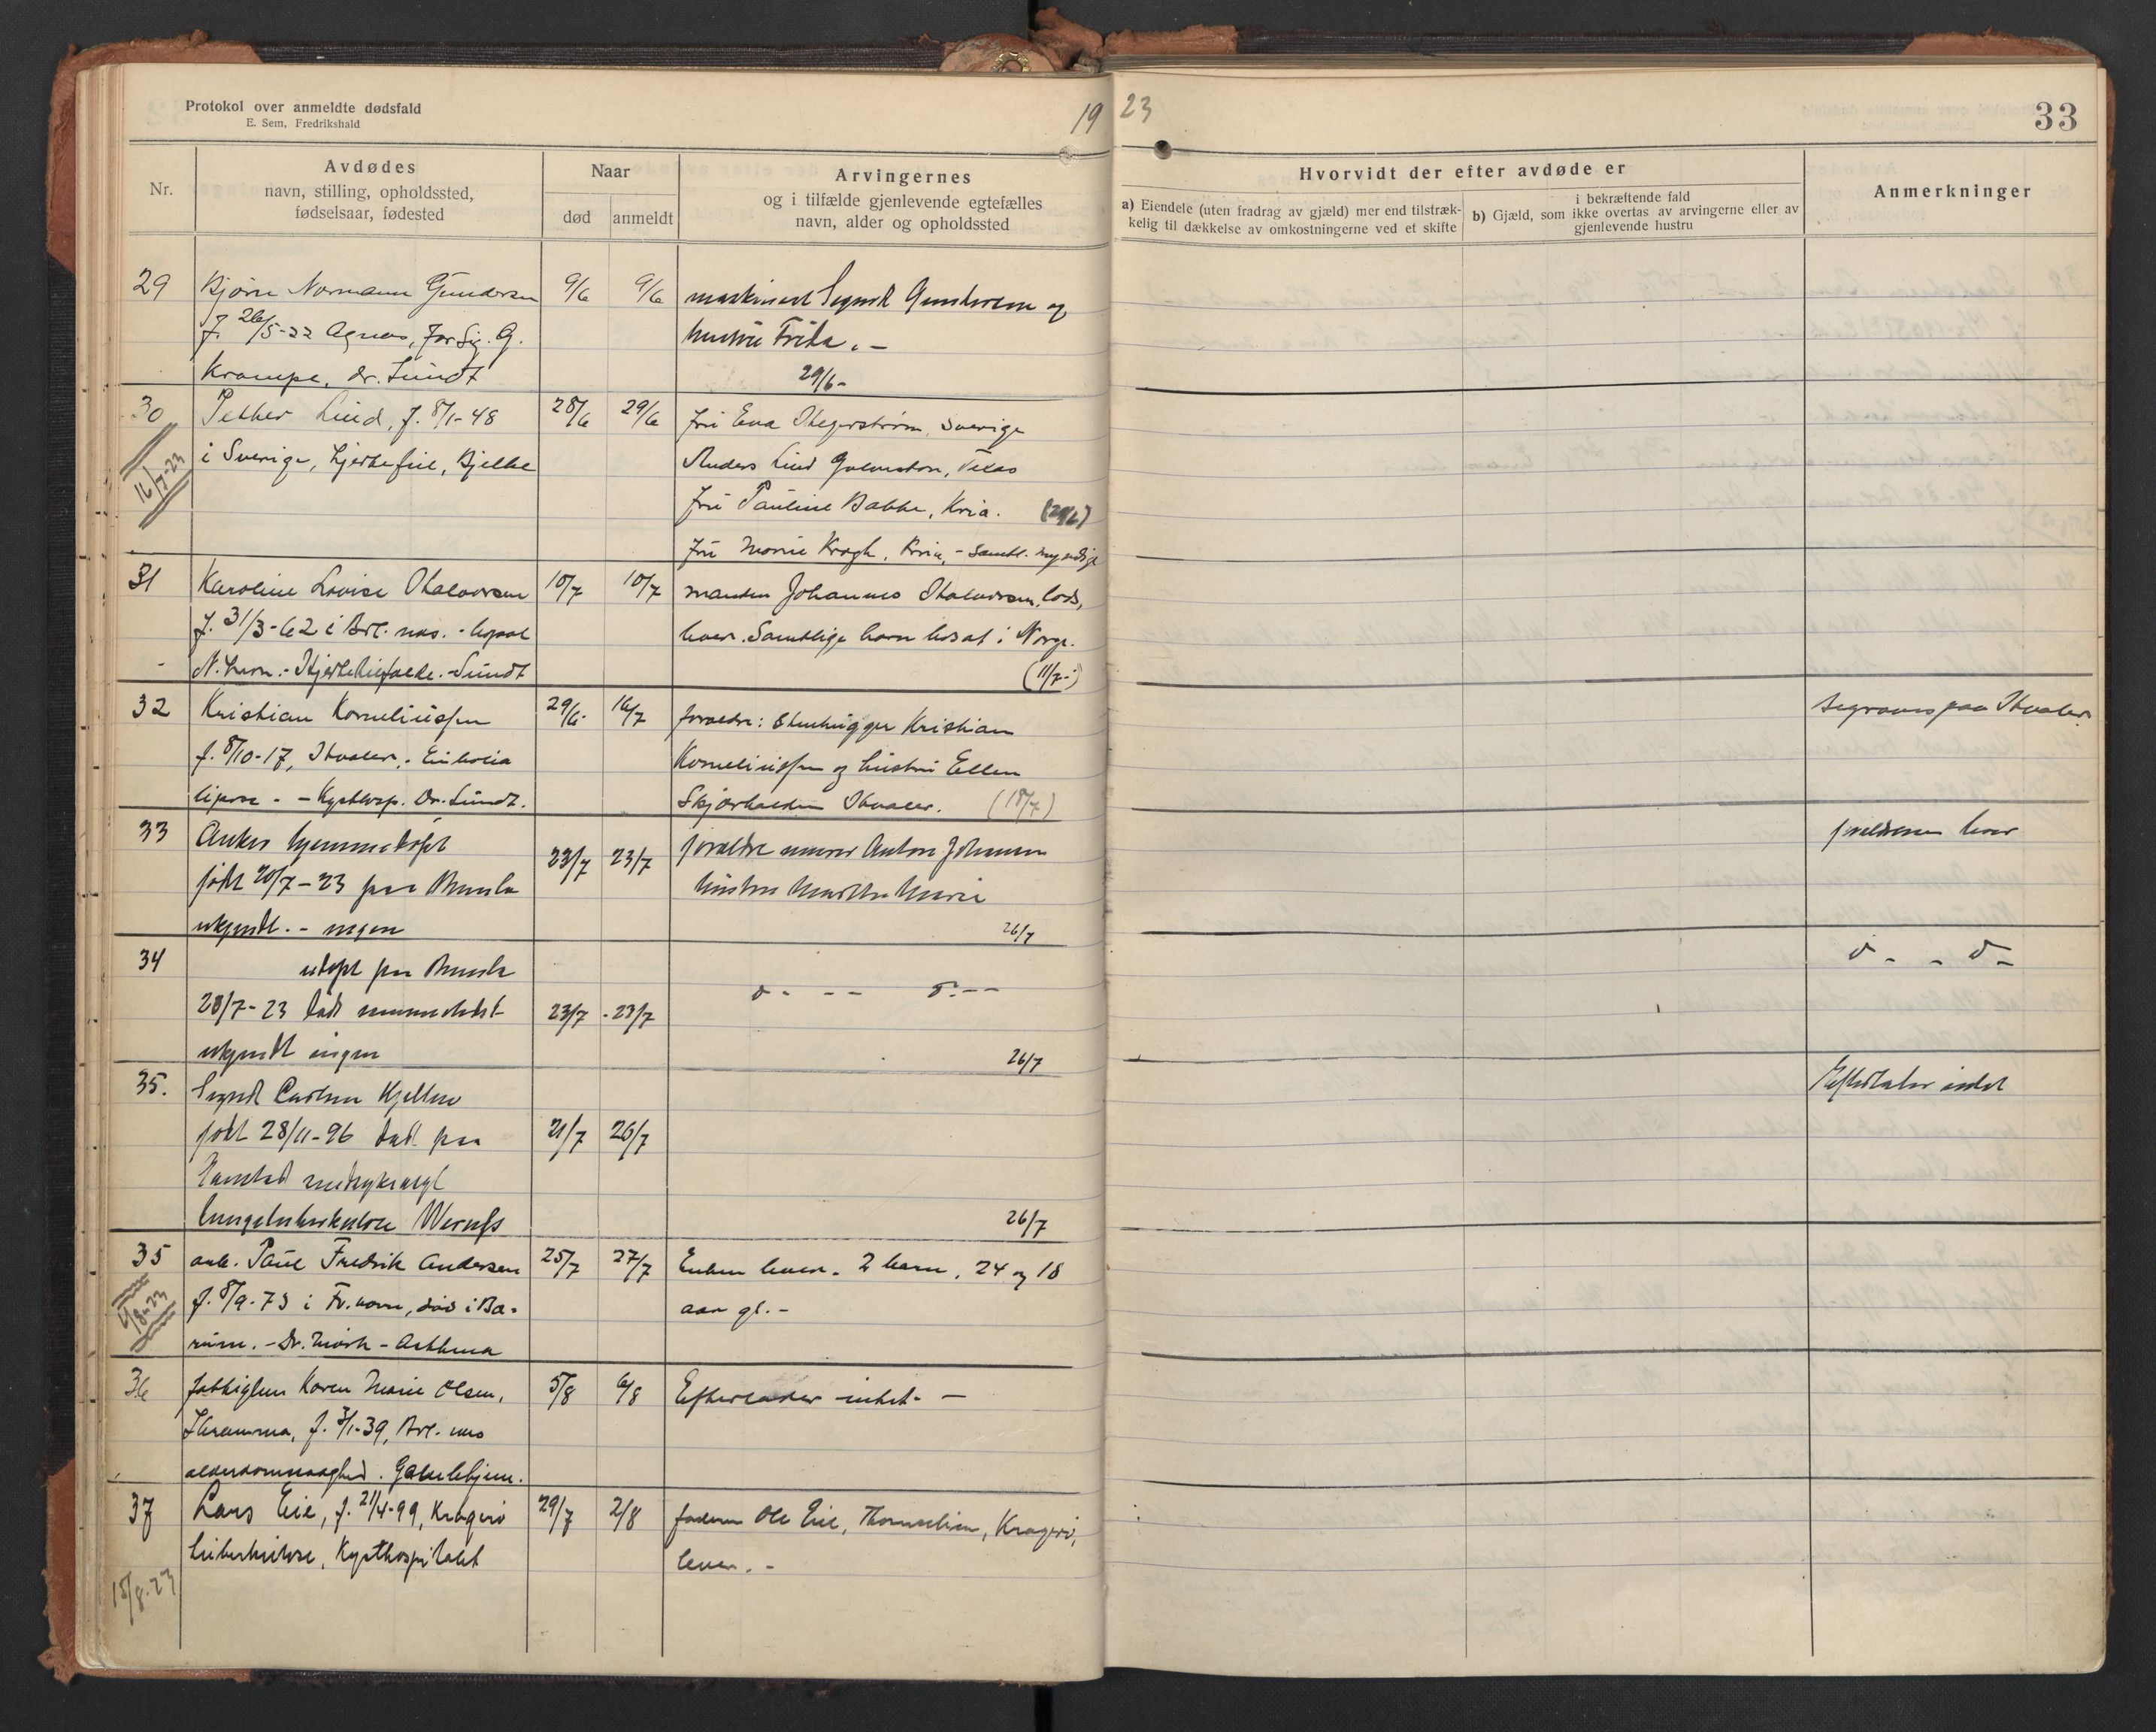 Protokol over anmeldte dødsfald
E. Sem, Fredrikshald
19 23
33
Nr.
Avdødes
navn, stilling, opholdssted,
fødselsaar, fødested
Naar
død
anmeldt
Arvingernes
og i tilfælde gjenlevende egtefælles
navn, alder og opholdssted
Hvorvidt der efter avdøde er
a) Eiendele (uten fradrag av gjæld) mer end tilstræk-
kelig til dækkelse av omkostningerne ved et skifte
i bekræftende fald
b) Gjæld, som ikke overtas av arvingerne eller av
gjenlevende hustru
Anmerkninger
29 Bjørn Normann Gundersen 9/6 9/6 maskinist Sigurd Gundersen og
f. 26/5-22 Agnes, for Sig. G. hustru Frida. -
Krampe, dr. Sundt 29/6-
30 Petter Lind, f. 8/1-48 28/6 29/6 fru Eva Hegerstrøm, Sverige
i Sverige, hjertefeil, Bjelke Anders Lind Galveston, Texas
16/7-23
fru Pauline Bakke, Kria. (29/6)
fru Marie Krogh, Kria, - samtl. myndige
31 Karoline Lovise Halvorsen 10/7 10/7 manden Johannes Halvorsen, lods,
f. 31/3-62 i Brl. nes. - bopæl lever. Samtlige barn bosat i Norge.
N. havn. - Hjerte - Sundt (11/7-)
32 Kristian Korneliussen 29/6- 16/7 forældre: Stenhugger Kristian
f. 8/10-17, Hvaler. - Korneliussen og hustru Ellen
- Kysthosp. Dr. Sundt. Skjærhalden Hvaler. (18/7)
begraves paa Hvaler.
33 hjemmedøpt 23/7 23/7 forældre murer Anton Johansen
født 20/7-23 paa hustru Martha Marie
ukjendt. - ingen 26/7
forældrene lever
34 udøpt paa
23/7-23 død 23/7 - 23/7 d - - - d. - -
ukjendt ingen 26/7
d - - d -
35. Sigurd Carlsen Kjellen
født 28/11-96 død paa 21/7 26/7
lungetuberkulose 26/7
Efterlater intet
35 arb. Paul Fredrik Andersen 25/7 27/7 Enken lever. 2 barn, 24 og 18
f. 8/9-73 i Fr. havn, død i Bæ- aar gl. -
4/8-23
rum. - Dr. Mørk - Asthma
36 fattiglem Karen Marie Olsen, 5/8 6/8 Efterlader intet. -
f. 3/1-39, Brl. nes
alderdomssvaghed. Gamlehjem.
37 Lars Eie, f. 21/4-99, Kragerø 29/7 2/8 faderen Ole Eie, Kragerø,
tuberkulose, Kysthospitalet lever. -
15/8-23